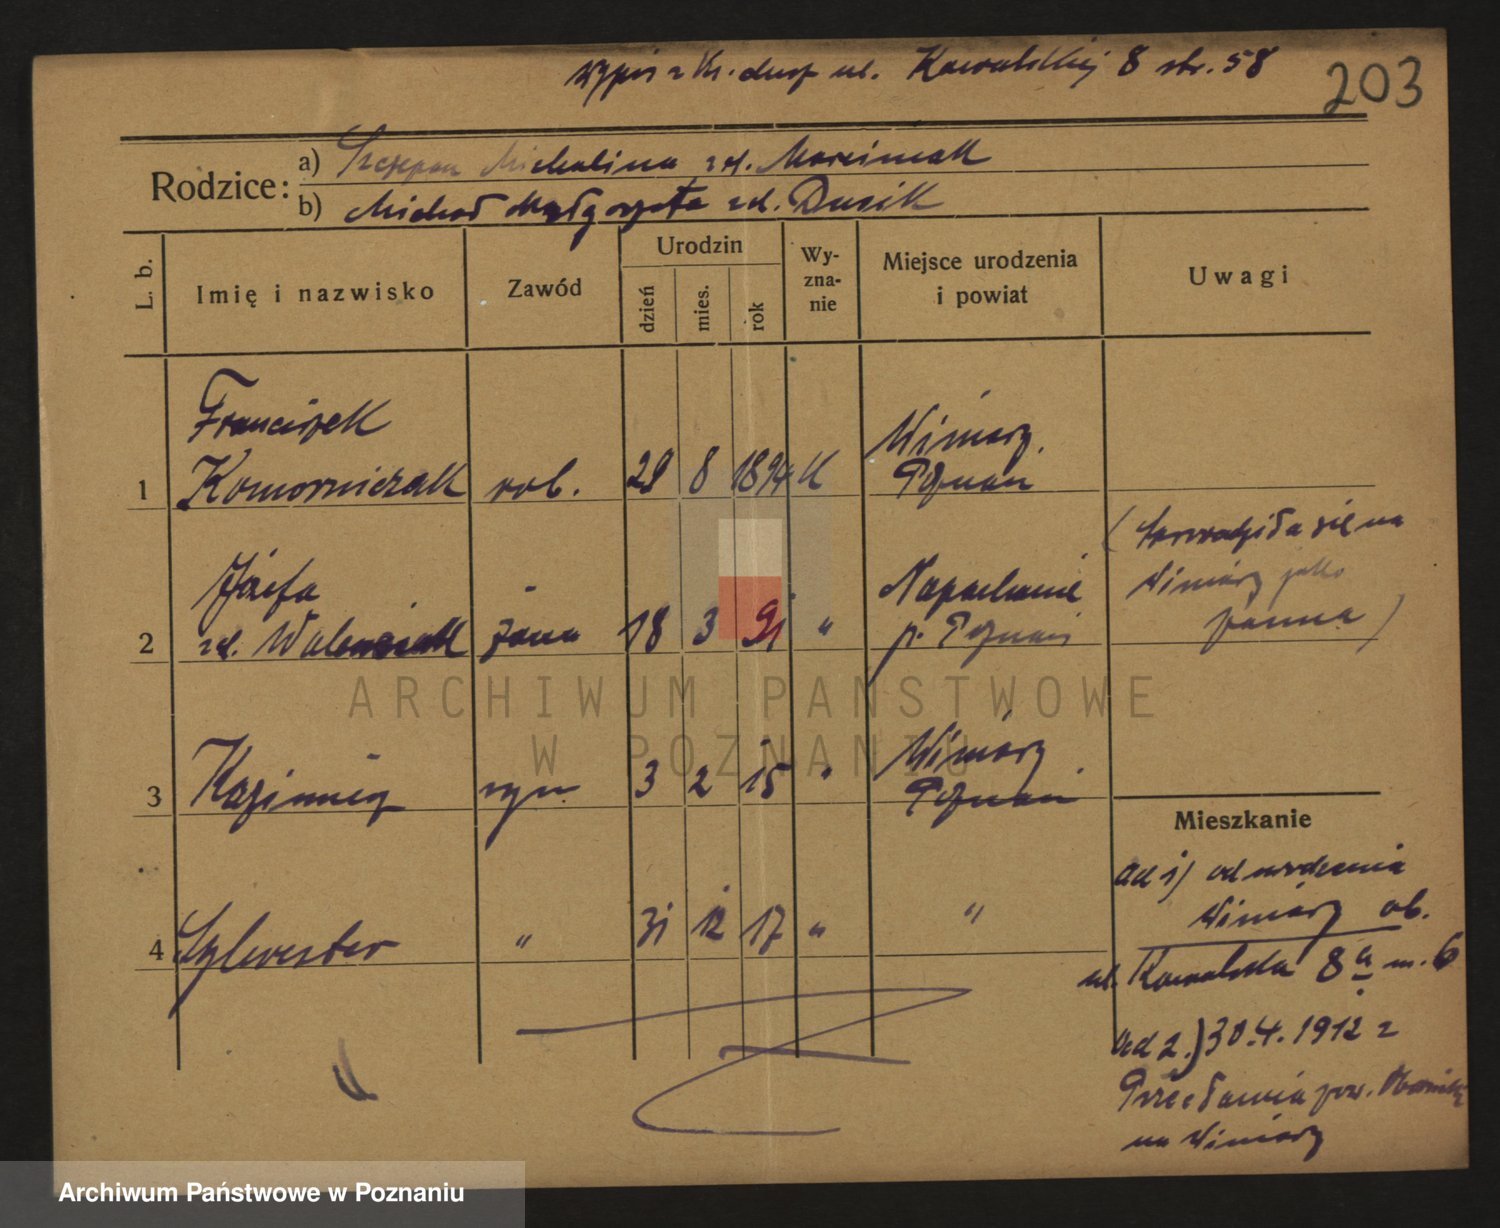 wypis z ks. dusz ul. Kowalskiej 8 str. 58
203
Rodzice:
a) Szczepan Michalina zd. Marciniak
b) Michał Małgorzata zd. Dusik
L. b.
Imię i nazwisko
Zawód
Urodzin
dzień
mies.
rok
Wy-
zna-
nie
Miejsce urodzenia
i powiat
Uwagi
Franciszek
1 Komorniczak rob. 29 8 1894 K Winiary Poznań
Józefa
2 zd. Walenciak żona 18 3 91 " Napachanie
p. Poznań
(sprowadziła się na
Winiary jako
panna)
3 Kazimierz syn 3 2 15 " Winiary
Poznań
4 Sylwester " 31 12 17 " "
Mieszkanie
ad 1) od urodzenia
Winiary ob.
ul. Kowalska 8a m. 6
ad 2.) 30.4.1912 z
Przecławia pow. Oborniki
na Winiary
ARCHIWUM PAŃSTWOWE
W POZNANIU
Archiwum Państwowe w Poznaniu